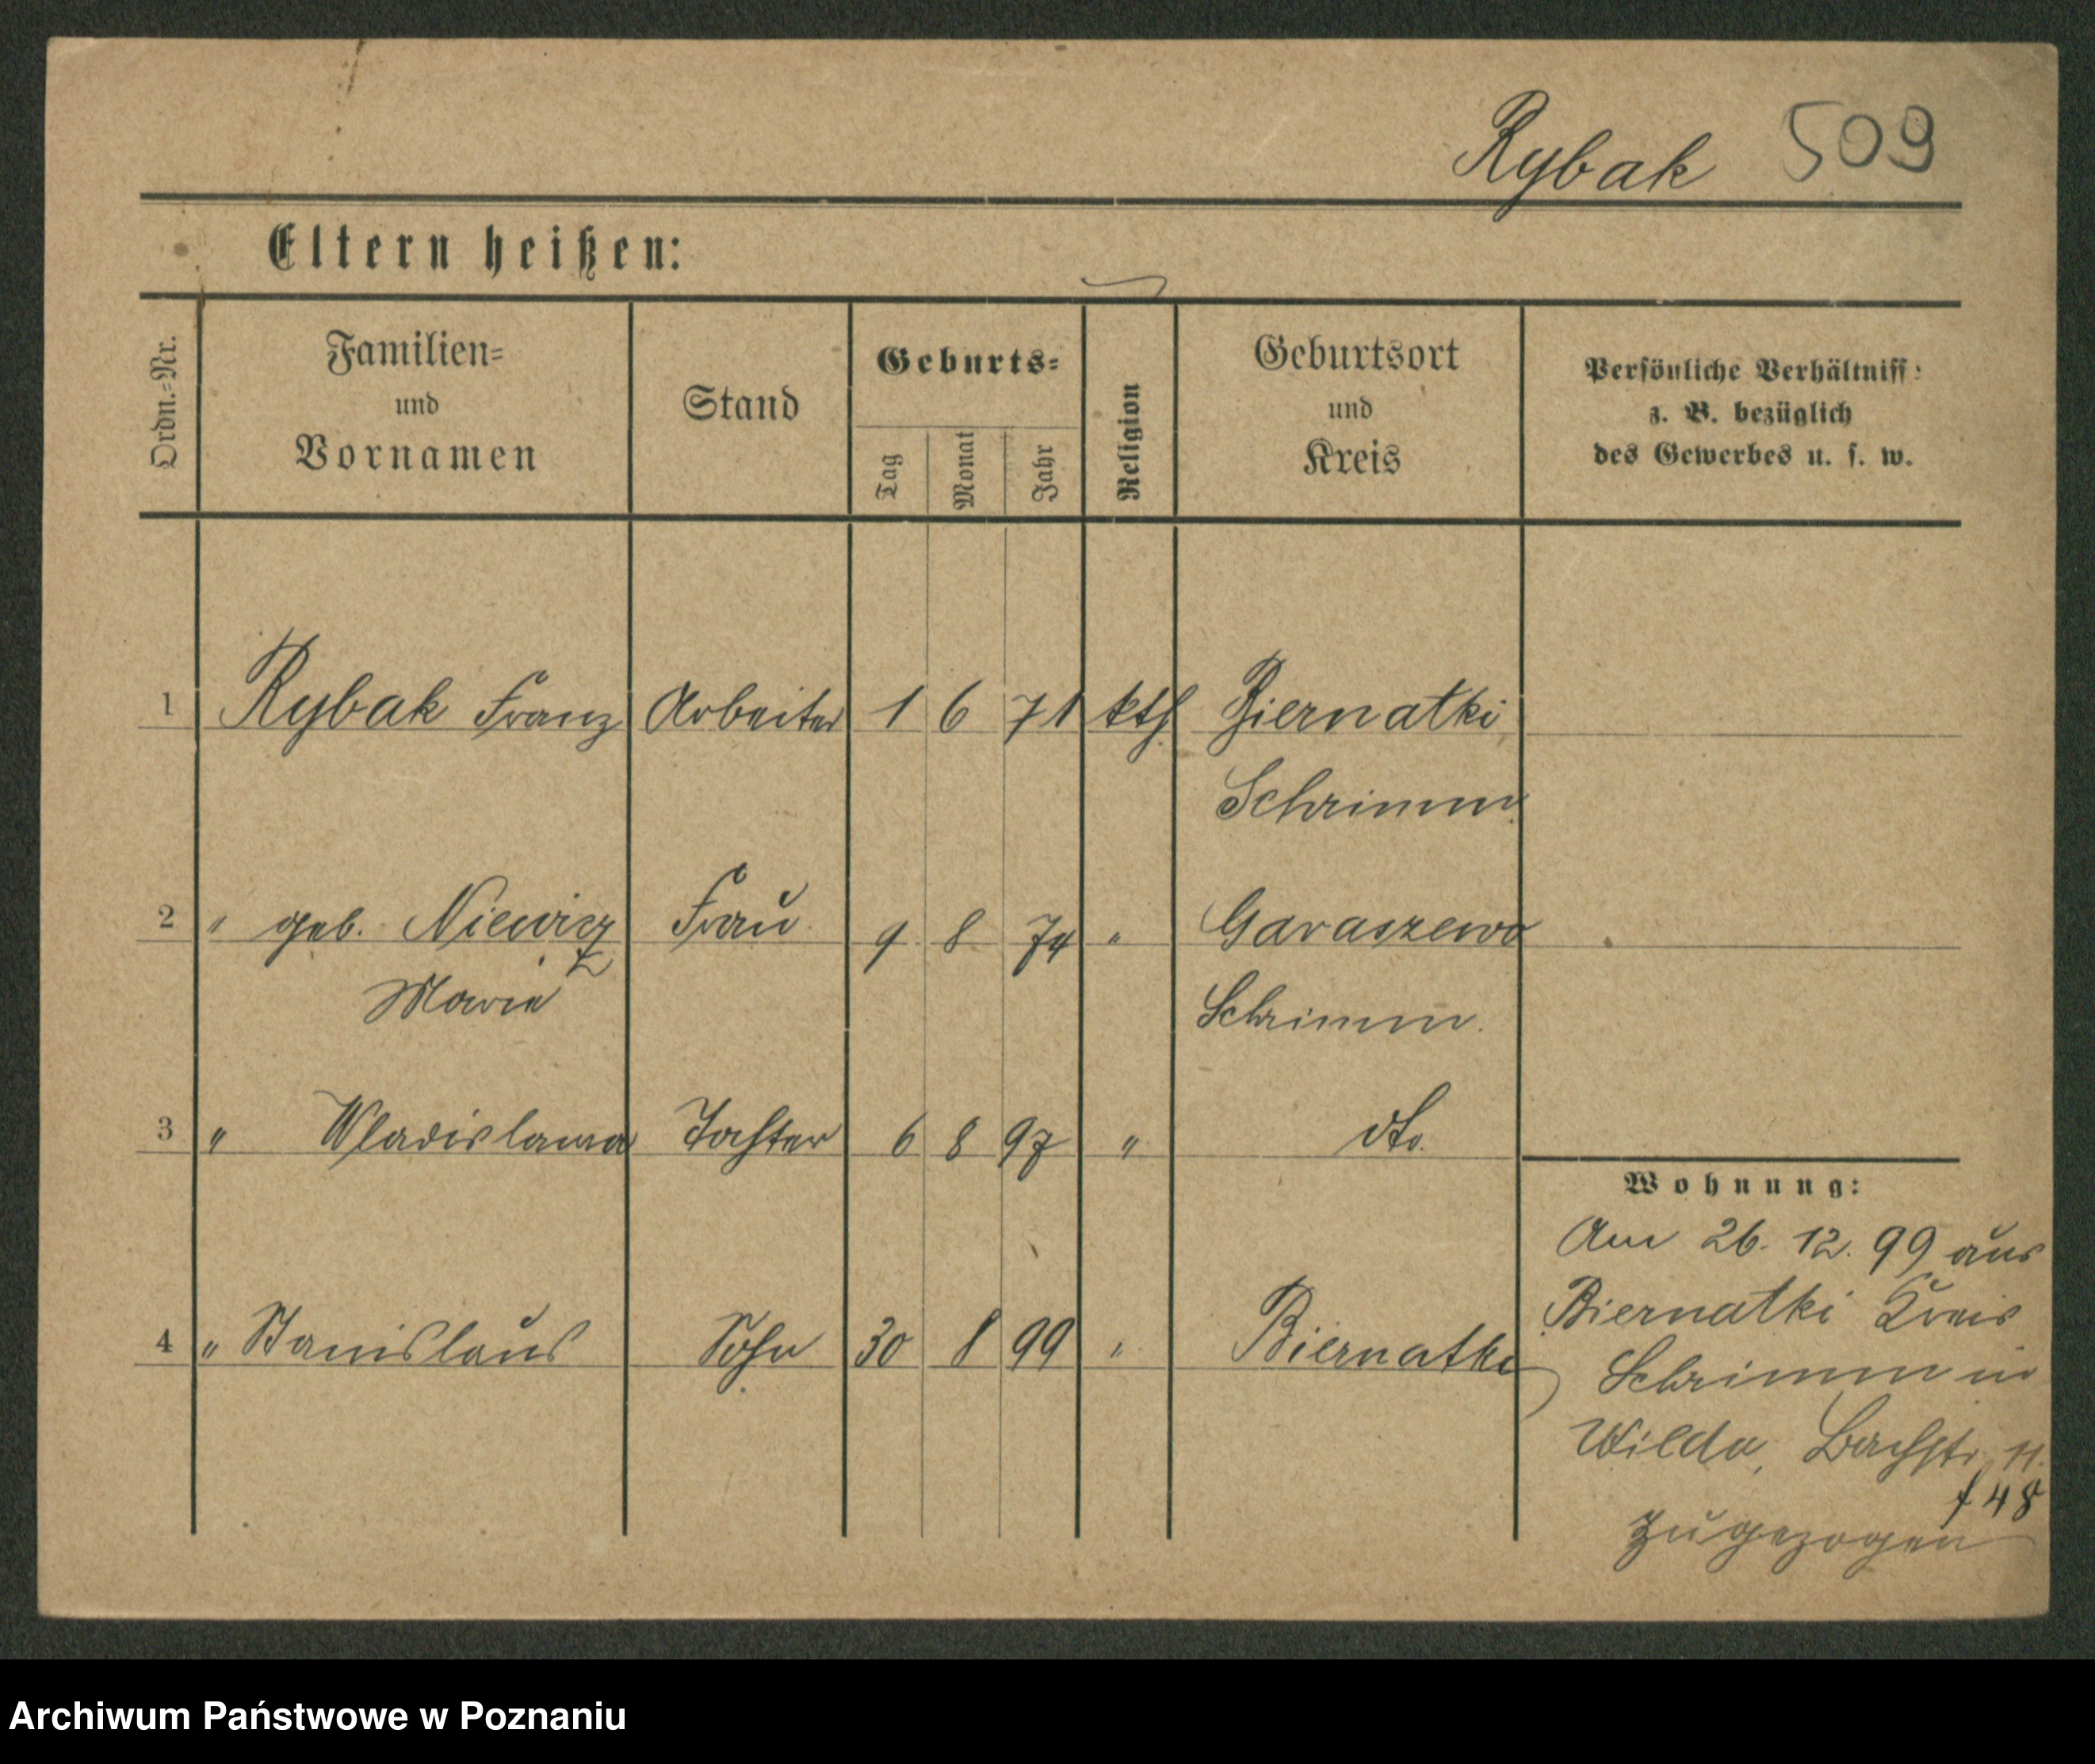 Rybak 509
Eltern heißen:
Ordn.=Nr.
Familien=
und
Vornamen
Stand
Geburts=
Tag
Monat
Jahr
Religion
Geburtsort
und
Kreis
Persönliche Verhältniss:
z. B. bezüglich
des Gewerbes u. s. w.
1 Rybak Franz Arbeiter 1 6 71 kth Biernatki
Schrimm
2 " geb. Niewicz Frau 9 8 74 " Garaszewo
Marie Schrimm.
3 " Wladislawa Tochter 6 8 97 " dto.
4 " Stanislaus Sohn 30 8 99 " Biernatki
Wohnung:
Am 26. 12. 99 aus
Biernatki Kreis
Schrimm in
Wilda, Bachstr. 11.
f 48
zugezogen
Archiwum Państwowe w Poznaniu